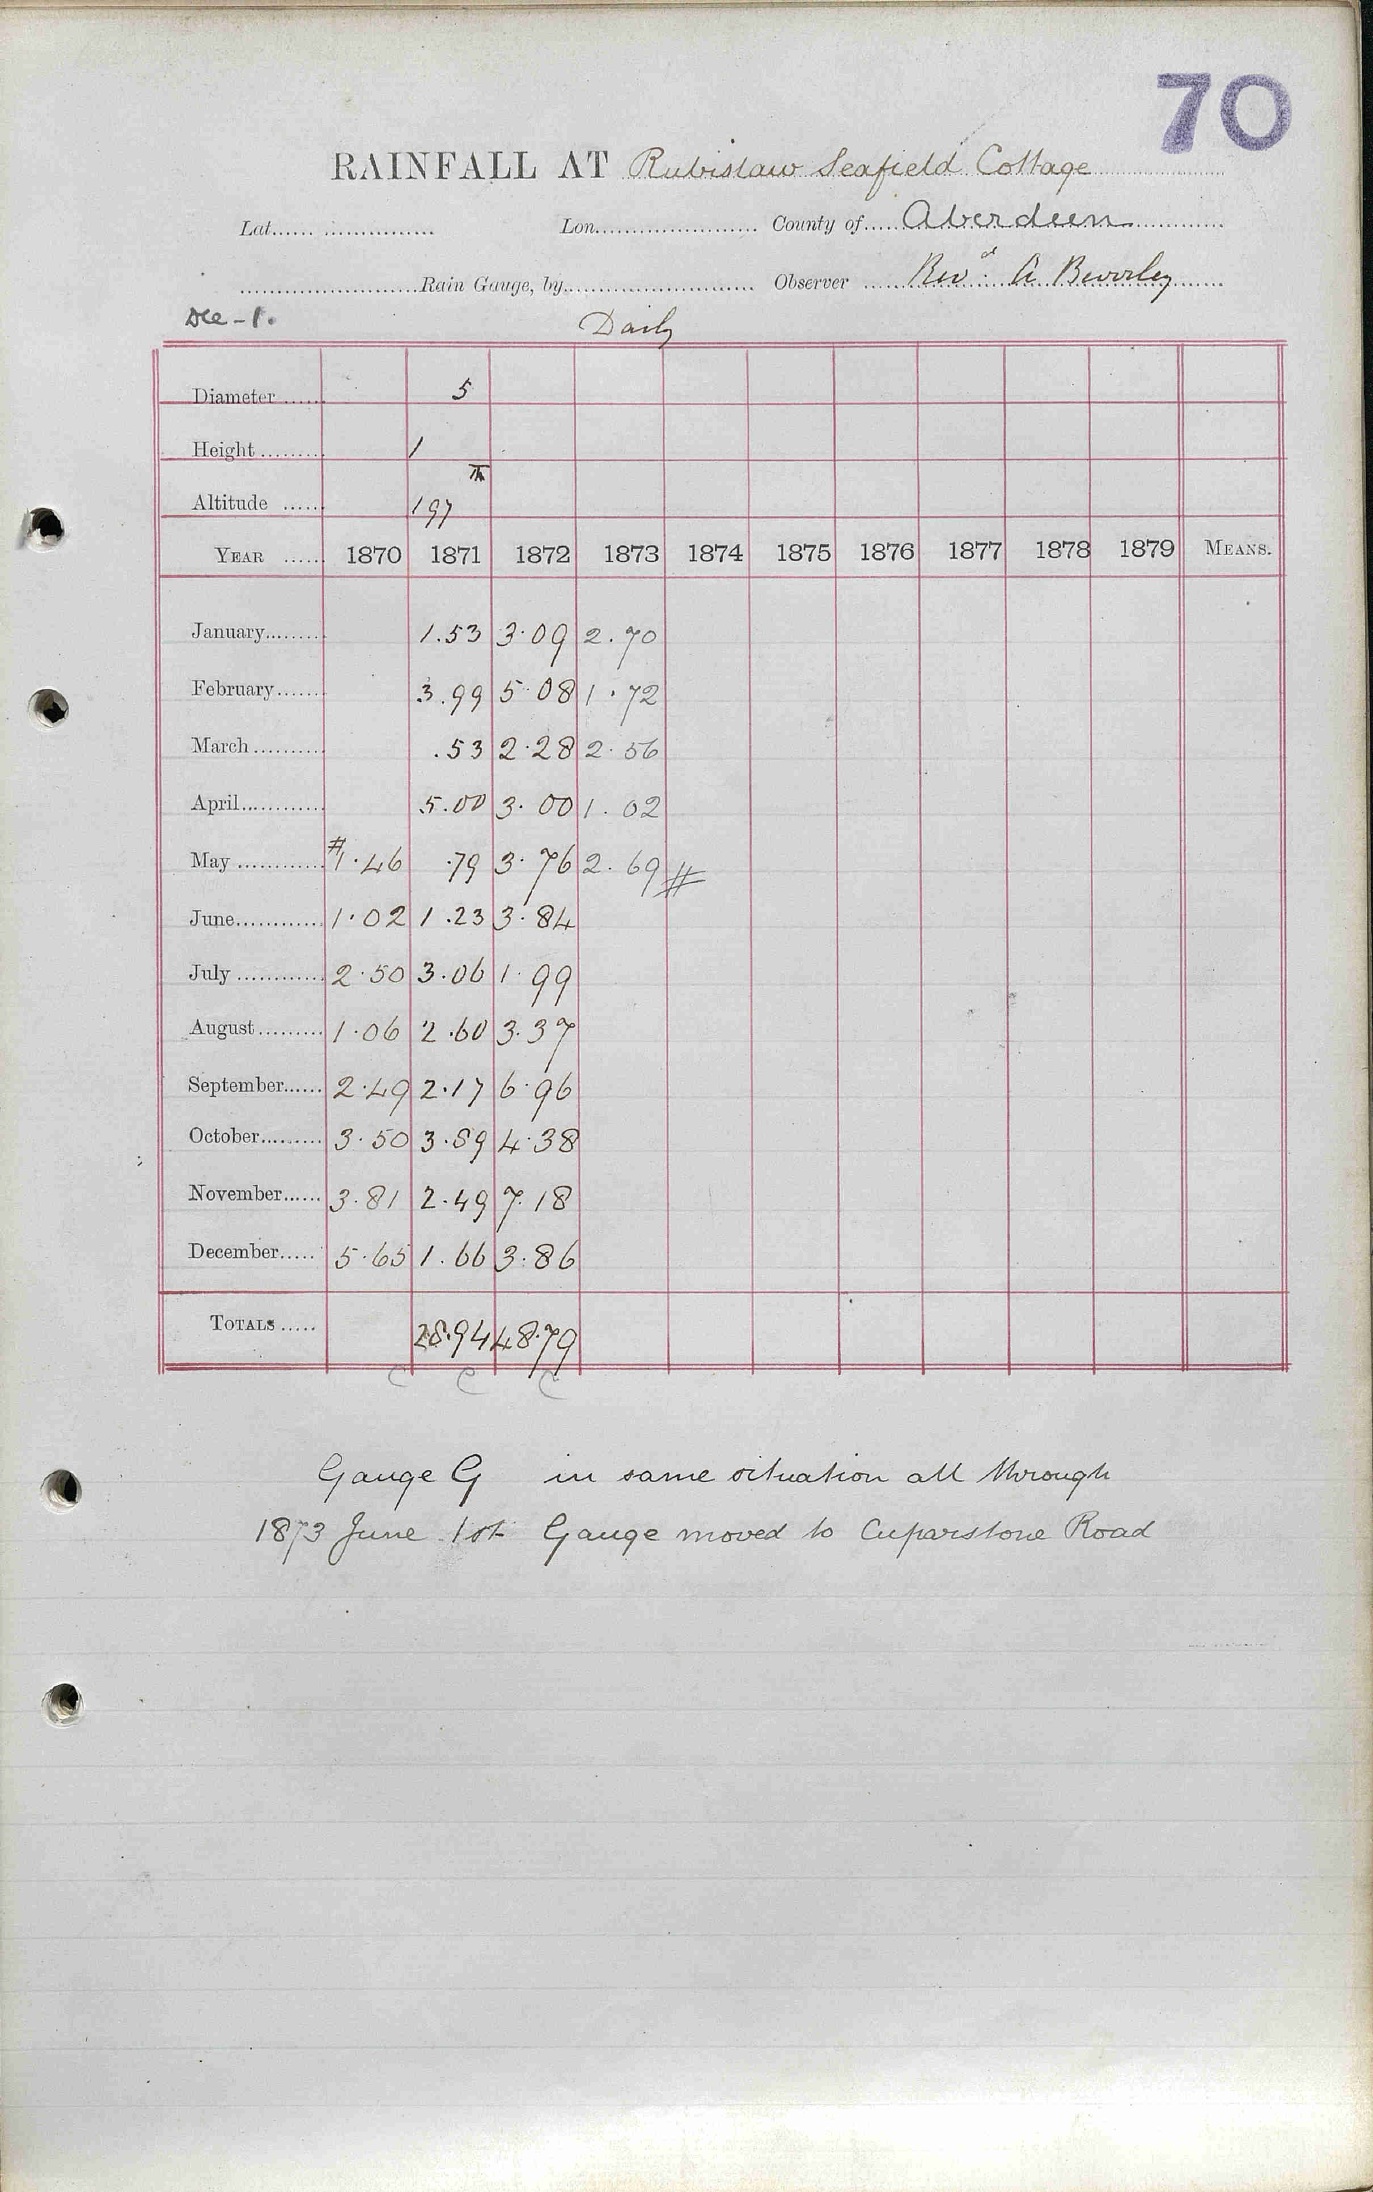 70
RAINFALL AT Rubislaw Seafield Cottage
Lat. Lon. County of Aberdeen
Rain Gauge, by Observer Revd. A Beverley
Dec - 1. Daily
Diameter 5
Height 1
Altitude 197
YEAR 1870 1871 1872 1873 1874 1875 1876 1877 1878 1879 MEANS.
January 1.53 3.09 2.70
February 3.99 5.08 1.72
March .53 2.28 2.56
April 5.00 3.00 1.02
May #1.46 .79 3.76 2.69 #
June 1.02 1.23 3.84
July 2.50 3.06 1.99
August 1.06 2.60 3.37
September 2.49 2.17 6.96
October 3.50 3.89 4.38
November 3.81 2.49 7.18
December 5.65 1.66 3.86
TOTALS 28.94 48.79
C C C
Gauge G in same situation all through
1873 June 1st Gauge moved to Cuparstone Road